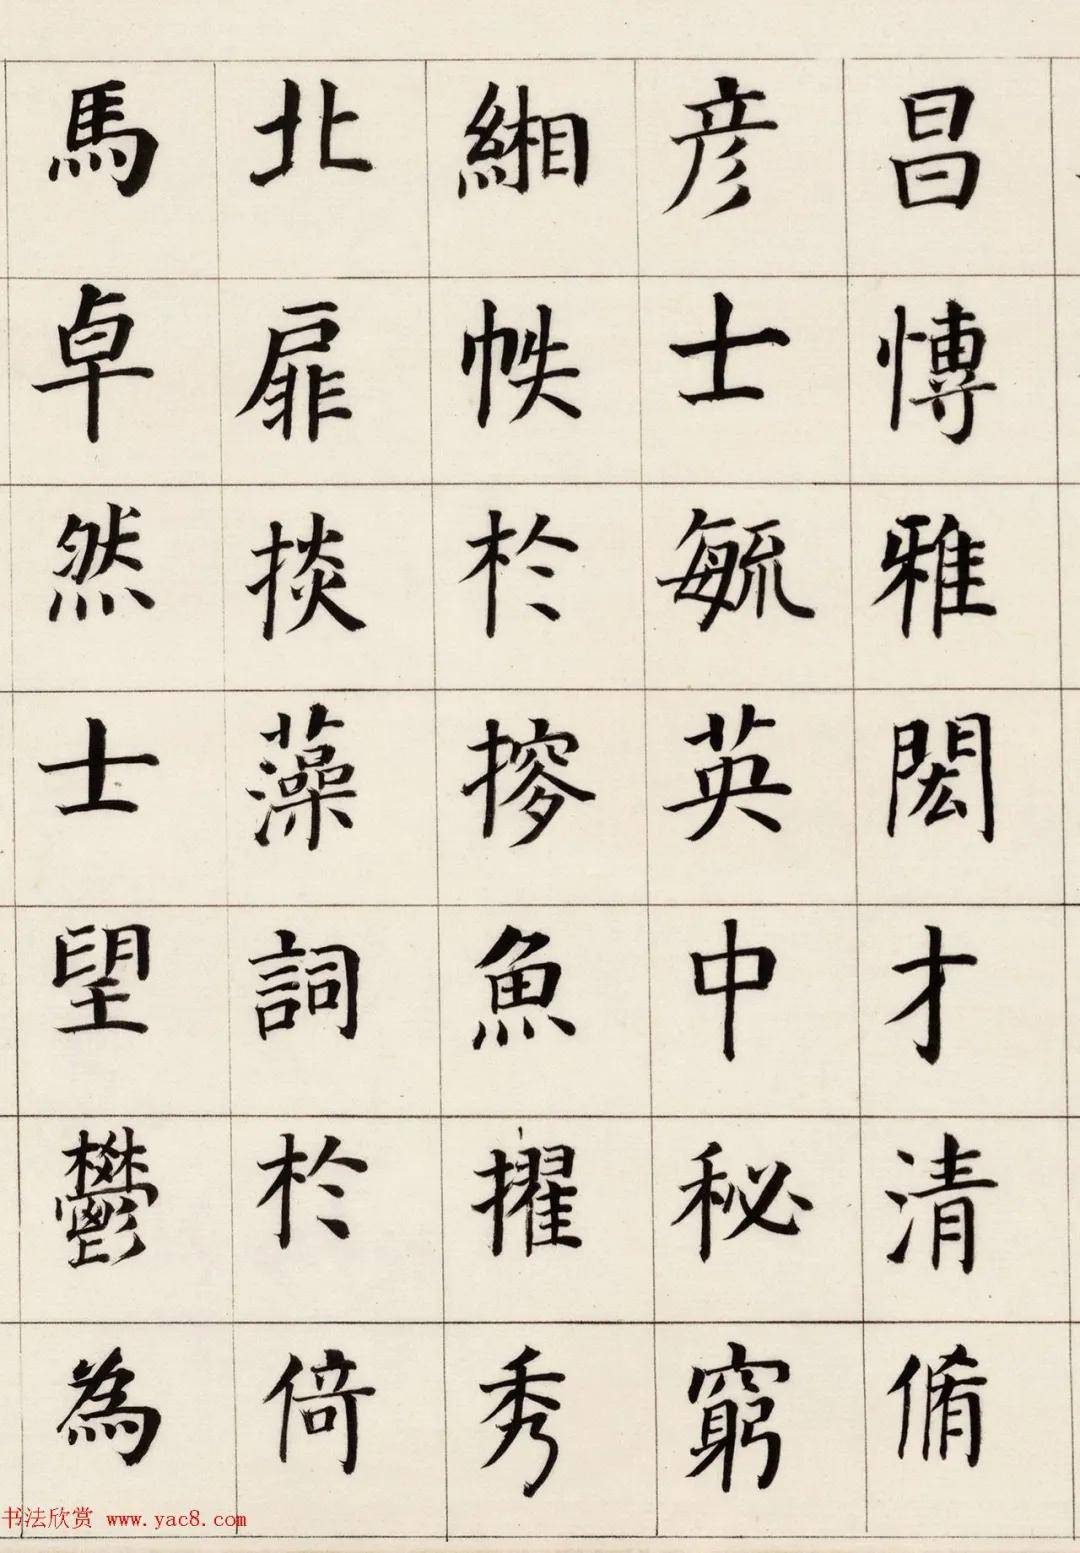 昌愽雅閎才清脩
彦士毓英中秘窮
緗帙於摎魚擢秀
北扉掞藻詞於倚
馬卓然士望鬱為
书法欣赏 www.yac8.com